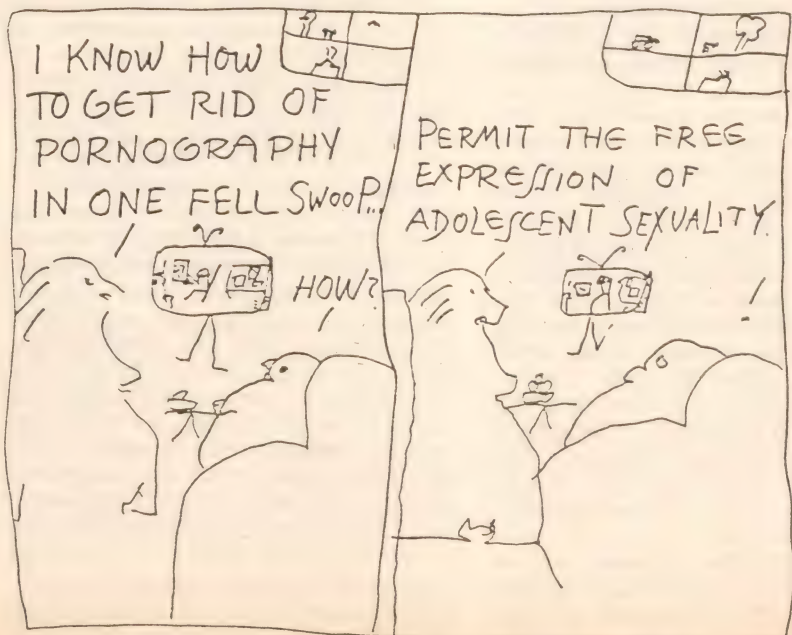 I KNOW HOW
TO GET RID OF
PORNOGRAPHY
IN ONE FELL SWOOP...
HOW?
PERMIT THE FREE
EXPRESSION OF
ADOLESCENT SEXUALITY.
!